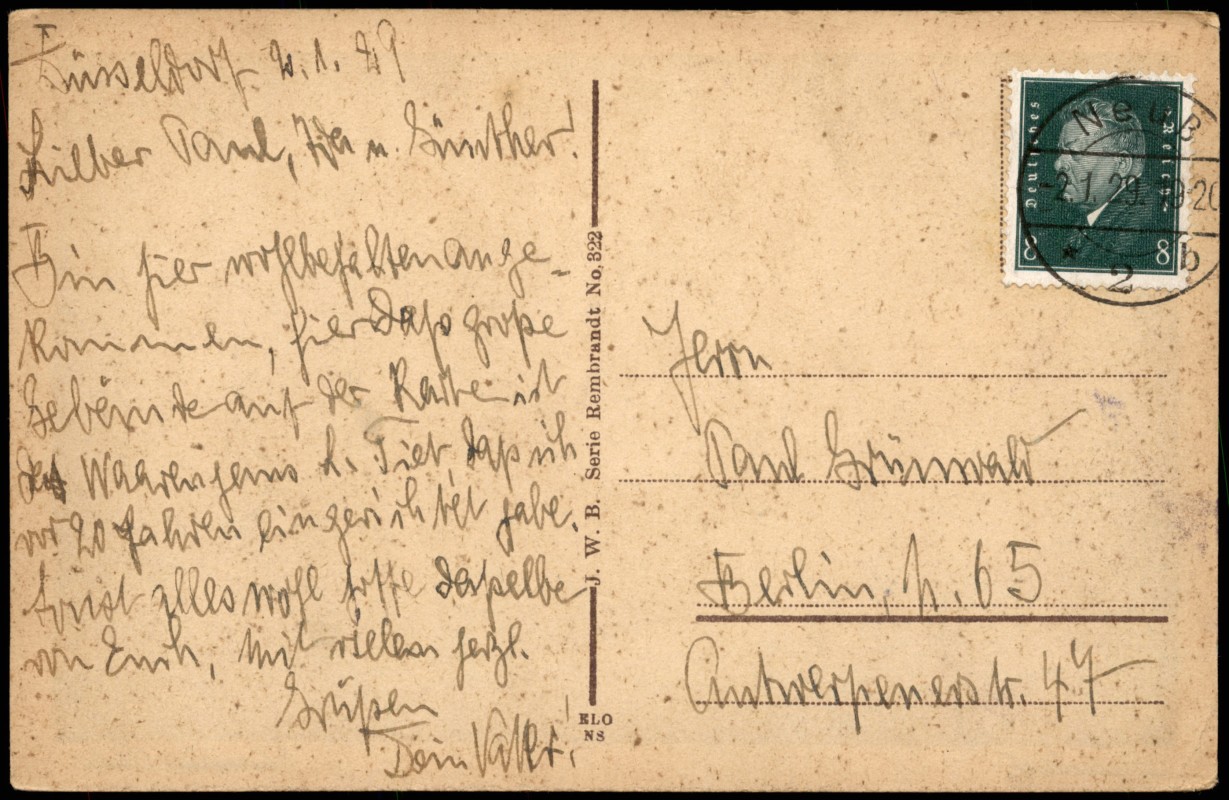 Düsseldorf 2.1.29
Lieber Paul, Ida u. Günther!
Bin hier wohlbehalten ange-
kommen, hier daß große
Gebäude auf der Karte ist
das Waarenhaus L. Tiet, daß ich
vor 20 Jahren eingerichtet habe.
Sonst alles wohl hoffe dasselbe
von Euch, mit vielen herzl.
Grüßen
Dein Vater.
J. W. B. Serie Rembrandt No. 322
ELO
NS
Deutsches Reich
8 8
Neuß
-2.1.29. 19-20
* 2 b
Herrn
Paul Grünwald
Berlin, N. 65
Antwerpenerstr. 47